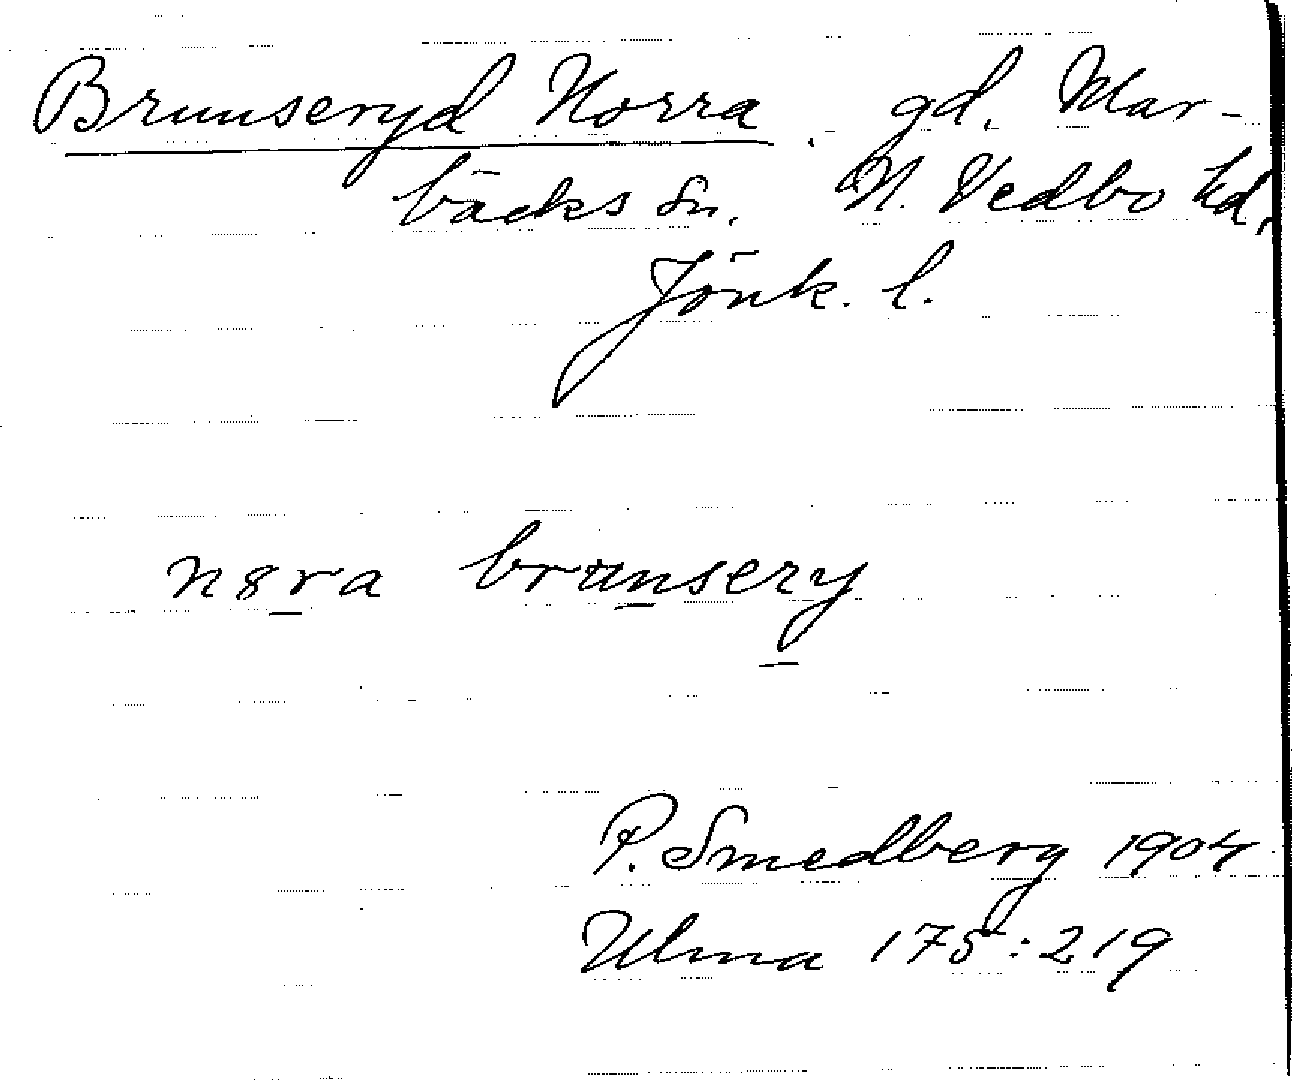 Brunseryd Norra. gd. Mar-
bäcks sn. N. Vedbo hd,
Jönk. l.
n8ra brunsery
P. Smedberg 1904
Ulma 175:219